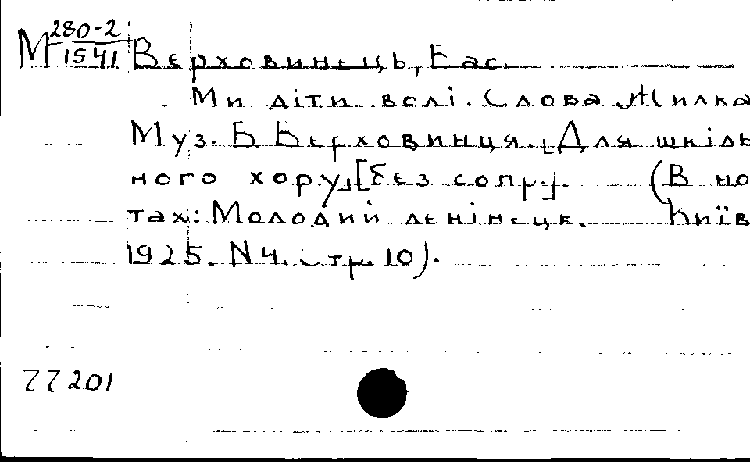 М 280-2
1541 Верховинець, Вас.
Ми діти волі. Слова Жилка
Муз. В Верховинця. [Для шкіль
ного хору] [без сопр]. (В но
тах: Молодий ленінець. Київ
1925. N 4. стр. 10).
77201